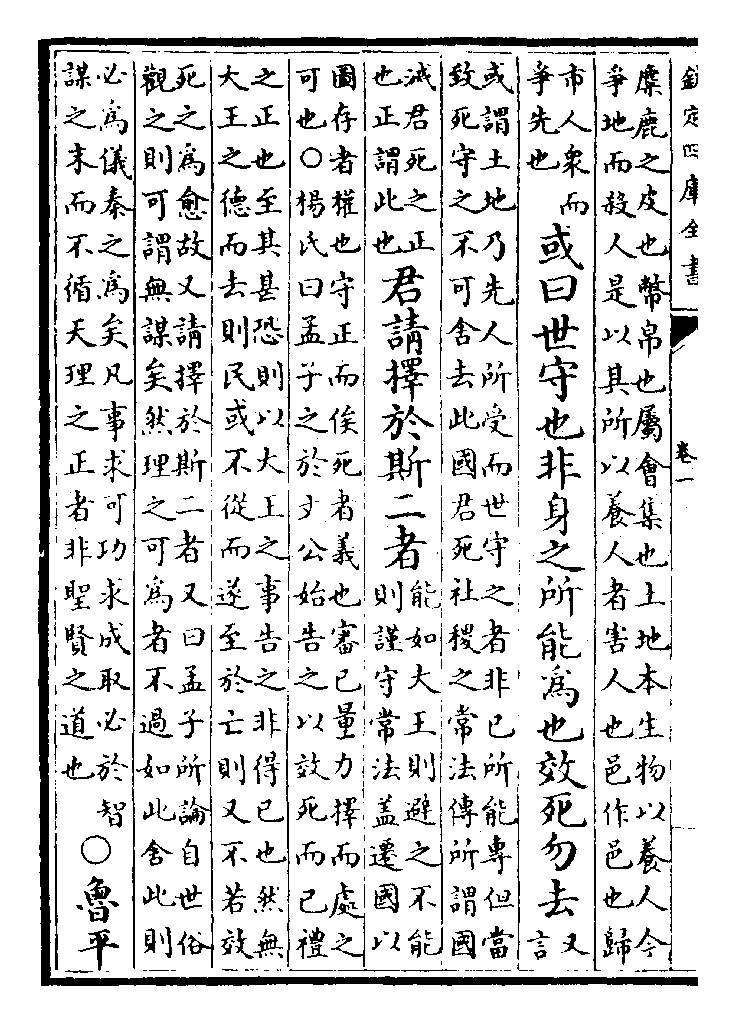 欽定四庫全書
卷一
麋鹿之皮也幣帛也屬會集也土地本生物以養人今
爭地而殺人是以其所以養人者害人也邑作邑也歸
市人衆而
爭先也
或曰世守也非身之所能為也效死勿去
又
言
或謂土地乃先人所受而世守之者非己所能專但當
致死守之不可舍去此國君死社稷之常法傳所謂國
滅君死之正
也正謂此也
君請擇於斯二者
能如大王則避之不能
則謹守常法蓋遷國以
圖存者權也守正而俟死者義也審己量力擇而處之
可也○楊氏曰孟子之於文公始告之以效死而已禮
之正也至其甚恐則以大王之事告之非得已也然無
大王之德而去則民或不從而遂至於亡則又不若效
死之為愈故又請擇於斯二者又曰孟子所論自世俗
觀之則可謂無謀矣然理之可為者不過如此舍此則
必為儀秦之為矣凡事求可功求成取必於智
謀之末而不循天理之正者非聖賢之道也
○魯平